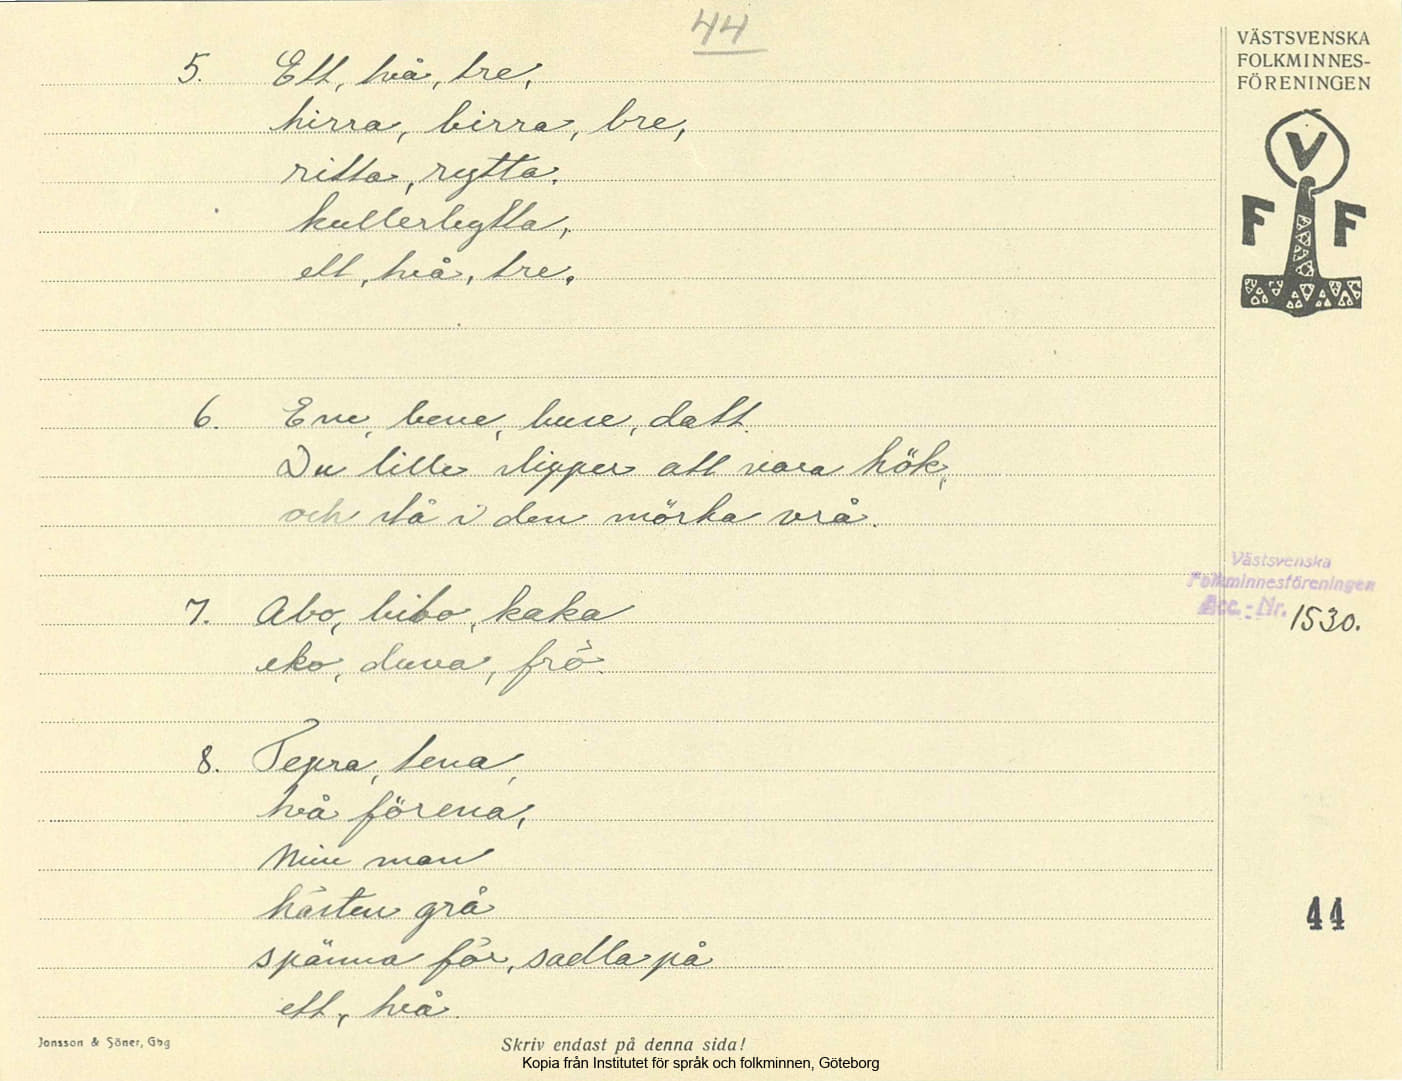 44
VÄSTSVENSKA
FOLKMINNES-
FÖRENINGEN
V
F F
5. Ett, två, tre,
hirra, birra, bre,
ritta, rytta,
kullerbytta,
ett, två, tre.
6. Ene, bene, buse, datt.
Du lille slipper att vara hök,
och stå i den mörka vrå.
Västsvenska
Folkminnesföreningen
Acc.-Nr. 1530.
7. Abo, bibo, kaka
eko, duva, frö.
8. Tepra, tena,
två förena,
Min man
hästen grå
spänna för, sadla på
ett, två.
44
Jonsson & Söner, Gbg
Skriv endast på denna sida!
Kopia från Institutet för språk och folkminnen, Göteborg